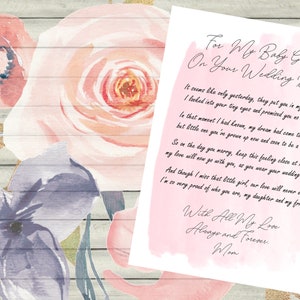 For My Baby G
On Your Wedding
It seems like only yesterday, they put you in m
I looked into your tiny eyes and promised you
In that moment I had known, my dream had come t
but little one you've grown up now and soon to be a
So on the day you marry, keep this feeling close at
my love will now go with you, as you wear your wedding
And though I miss that little girl, our love will never
I'm so very proud of who you are, my daughter and my fr
With All My Love
Always and Forever
Mom